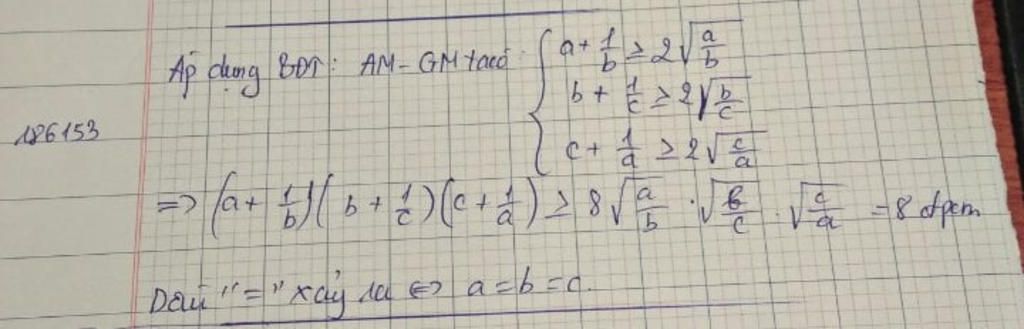 Áp dụng BĐT: AM-GM ta có: { a + 1/b ≥ 2√(a/b)
b + 1/c ≥ 2√(b/c)
186153
c + 1/a ≥ 2√(c/a)
=> (a + 1/b)(b + 1/c)(c + 1/a) ≥ 8√(a/b) · √(b/c) · √(c/a) = 8 đpcm
Dấu "=" xảy ra <=> a = b = c.